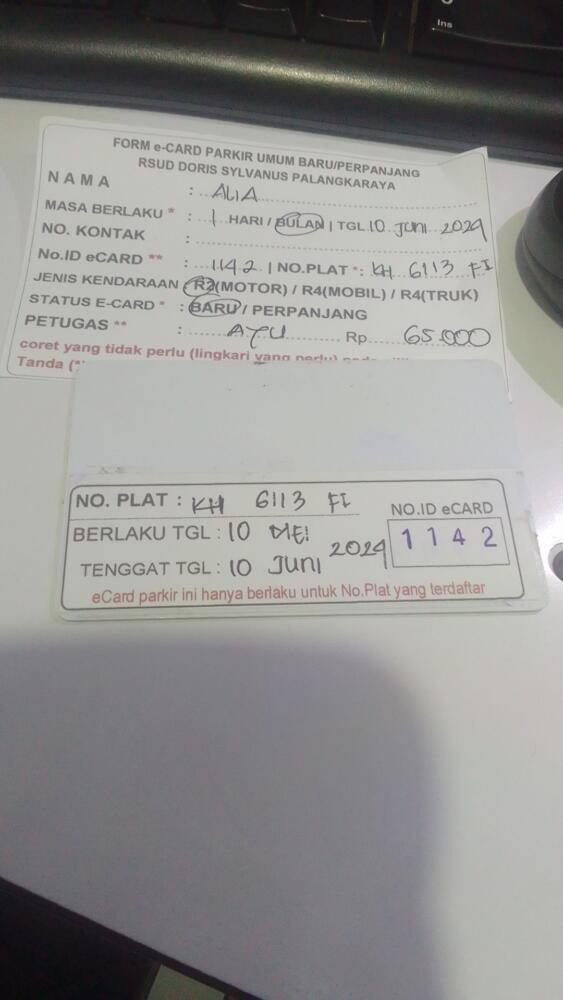 Ins
FORM e-CARD PARKIR UMUM BARU/PERPANJANG
RSUD DORIS SYLVANUS PALANGKARAYA
N A M A : ALIA
MASA BERLAKU * : 1 HARI / BULAN | TGL 10 Juni 2024
NO. KONTAK :
No.ID eCARD ** : 1142 | NO.PLAT *: KH 6113 FI
JENIS KENDARAAN R2(MOTOR) / R4(MOBIL) / R4(TRUK)
STATUS E-CARD * : BARU / PERPANJANG
PETUGAS ** : AYU Rp. 65.000
coret yang tidak perlu (lingkari yang perlu)
Tanda (*
NO. PLAT : KH 6113 FI
NO.ID eCARD
BERLAKU TGL : 10 MEI
2024
1 1 4 2
TENGGAT TGL : 10 Juni
eCard parkir ini hanya berlaku untuk No.Plat yang terdaftar